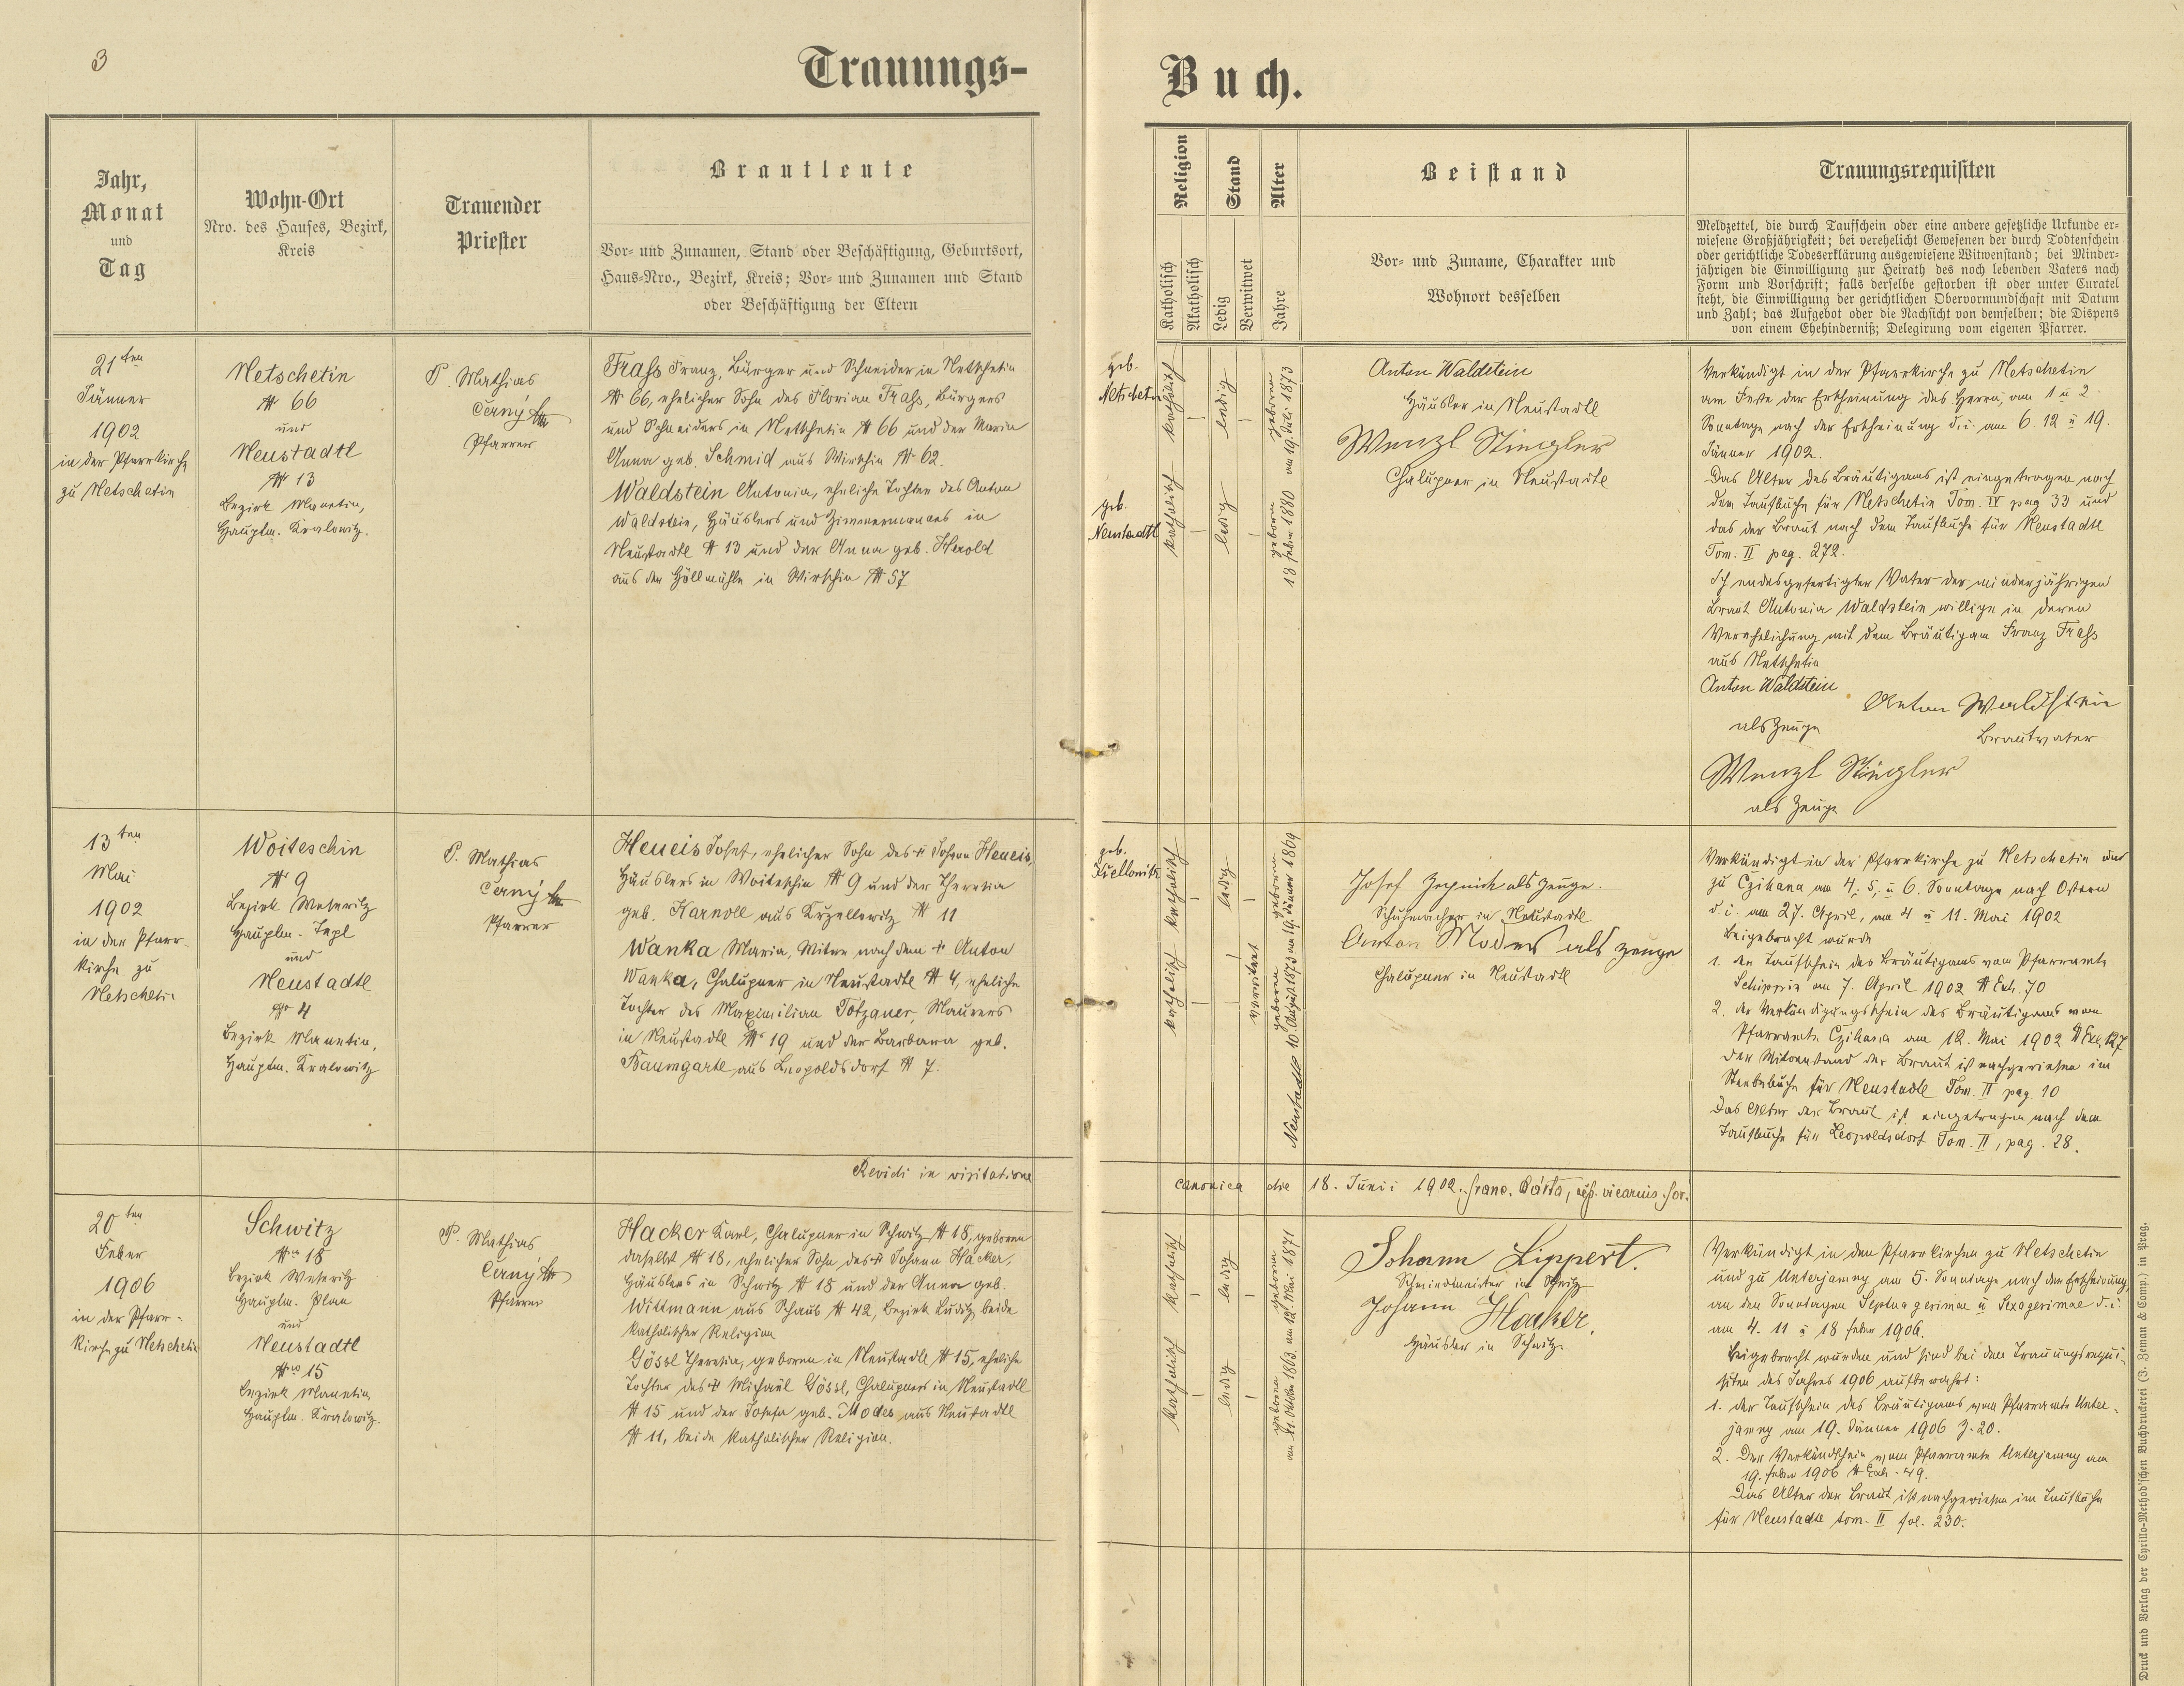 3
Trauungs-
Buch.
Jahr,
Monat
und
Tag
Wohn-Ort
Nro. des Hauses, Bezirk,
Kreis
Trauender
Priester
Brautleute
Vor- und Zunamen, Stand oder Beschäftigung, Geburtsort,
Haus-Nro., Bezirk, Kreis; Vor- und Zunamen und Stand
oder Beschäftigung der Eltern
Religion
Katholisch
Akatholisch
Stand
Ledig
Verwitwet
Alter
Jahre
Beistand
Vor- und Zuname, Charakter und
Wohnort desselben
Trauungsrequisiten
Meldzettel, die durch Taufschein oder eine andere gesetzliche Urkunde er-
wiesene Großjährigkeit; bei verehelicht Gewesenen der durch Todtenschein
oder gerichtliche Todeserklärung ausgewiesene Witwenstand; bei Minder-
jährigen die Einwilligung zur Heirath des noch lebenden Vaters nach
Form und Vorschrift; falls derselbe gestorben ist oder unter Curatel
steht, die Einwilligung der gerichtlichen Obervormundschaft mit Datum
und Zahl; das Aufgebot oder die Nachsicht von demselben; die Dispens
von einem Ehehinderniß; Delegirung vom eigenen Pfarrer.
21ten
Jänner
1902
in der Pfarrkirche
zu Netschetin
Netschetin
№ 66
und
Neustadtl
№ 13
Bezirk Manetin,
Hauptm. Kralowitz.
P. Mathias
Černý
Pfarrer
Frass Franz, Bürger und Schneider in Netschetin
№ 66, ehelicher Sohn des Florian Frass, Bürgers
und Schneiders in Netschetin № 66 und der Maria
Anna geb. Schmid aus Wirschin № 62.
Waldstein Antonia, eheliche Tochter des Anton
Waldstein, Häuslers und Zimmermannes in
Neustadtl № 13 und der Anna geb. Herold
aus der Höllmühle in Wirschin № 57
geb.
Netschetin
katholisch
ledig
geboren
am 19. Juli 1873
geb.
Neustadtl
katholisch
ledig
geboren
18 Feber 1880
Anton Waldstein
Häusler in Neustadtl
Wenzl Stingler
Chalupner in Neustadtl
Verkündigt in der Pfarrkirche zu Netschetin
am Feste der Erscheinung des Herrn, am 1 u 2
Sonntage nach der Erscheinung d. i. am 6. 12 u 19.
Jänner 1902.
Das Alter des Bräutigams ist eingetragen nach
dem Taufbuche für Netschetin Tom. IV pag 33 und
das der Braut nach dem Taufbuche für Neustadtl
Tom. II pag. 272.
Ich endesgefertigter Vater der minderjährigen
Braut Antonia Waldstein willige in deren
Verehelichung mit dem Bräutigam Franz Frass
aus Netschetin
Anton Waldstein
als Zeuge
Anton Waldstein
Brautvater
Wenzl Stingler
als Zeuge
13ten
Mai
1902
in der Pfarr-
kirche zu
Netschetin
Woiteschin
№ 9
Bezirk Weseritz
Hauptm. Tepl
und
Neustadtl
№ 4
Bezirk Manetin,
Hauptm. Kralowitz
P. Mathias
Černý
Pfarrer
Heneis Josef, ehelicher Sohn des † Johann Heneis,
Häuslers in Woiteschin № 9 und der Theresia
geb. Karnoll aus Krzellowitz № 11
Wanka Maria, Witwe nach dem † Anton
Wanka, Chalupner in Neustadtl № 4, eheliche
Tochter des Maximilian Totzauer, Maurers
in Neustadtl № 19 und der Barbara geb.
Baumgartl aus Leopoldsdorf № 7.
geb.
katholisch
ledig
geboren
am 19. Jänner 1869
katholisch
verwitwet
geboren
Neustadtl 10. August 1873
Josef als Zeuge.
Schuhmacher in Neustadtl
Anton Modes als Zeuge
Chalupner in Neustadtl
Verkündigt in der Pfarrkirche zu Netschetin und
zu Czihana am 4. 5. u 6. Sonntage nach Ostern
d. i. am 27. April, am 4 u 11. Mai 1902
Beigebracht wurde
1. der Taufschein des Bräutigams vom Pfarramte
Schippin am 7. April 1902 № Exh. 70
2. der Verkündigungsschein des Bräutigams vom
Pfarramte Czihana am 12. Mai 1902 № Exh. 127
Der Witwenstand der Braut ist nachgewiesen im
Sterbebuche für Neustadtl Tom. II pag. 10
Das Alter der Braut ist eingetragen nach dem
Taufbuche für Leopoldsdorf Tom. II, pag. 28.
Revidi in visitatione
canonica die 18. Junii 1902. Franc. Bárta, vicarius for.
20ten
Feber
1906
in der Pfarr-
kirche zu Netschetin
Schwitz
№ 18
Bezirk Weseritz
Hauptm. Plan
und
Neustadtl
№ 15
Bezirk Manetin
Hauptm. Kralowitz.
P. Mathias
Černý
Pfarrer
Hacker Karl, Chalupner in Schwitz № 18, geboren
daselbst № 18, ehelicher Sohn des † Johann Hacker,
Häuslers in Schwitz № 18 und der Anna geb.
Wittmann aus Schaub № 42, Bezirk Luditz, beide
katholischer Religion
Gössl Theresia, geboren in Neustadtl № 15, eheliche
Tochter des † Michael Gössl, Chalupners in Neustadtl
№ 15 und der Josefa geb. Modes aus Neustadtl
№ 11, beide katholischer Religion.
katholisch
ledig
geboren
am 12. Mai 1871
katholisch
ledig
geboren
am 21. Oktober 1863.
Johann Lippert.
Schmiedmeister in Schwitz
Johann Hacker.
Häusler in Schwitz.
Verkündigt in den Pfarrkirchen zu Netschetin
und zu Unterjamny am 5. Sonntage nach der Erscheinung,
an den Sonntagen Septuagesimae u Sexagesimae d. i.
am 4. 11 u 18 Feber 1906.
Beigebracht wurden und sind bei den Trauungsrequi-
siten des Jahres 1906 aufbewahrt:
1. der Taufschein des Bräutigams vom Pfarramte Unter-
jamny am 19. Jänner 1906 Z. 20.
2. Der Verkündschein vom Pfarramte Unterjamny am
19. Feber 1906 № Exh. 49.
Das Alter der Braut ist nachgewiesen im Taufbuche
für Neustadtl tom. II fol. 230.
Druck und Verlag der Cyrillo-Method'schen Buchdruckerei (J. Zeman & Comp.) in Prag.